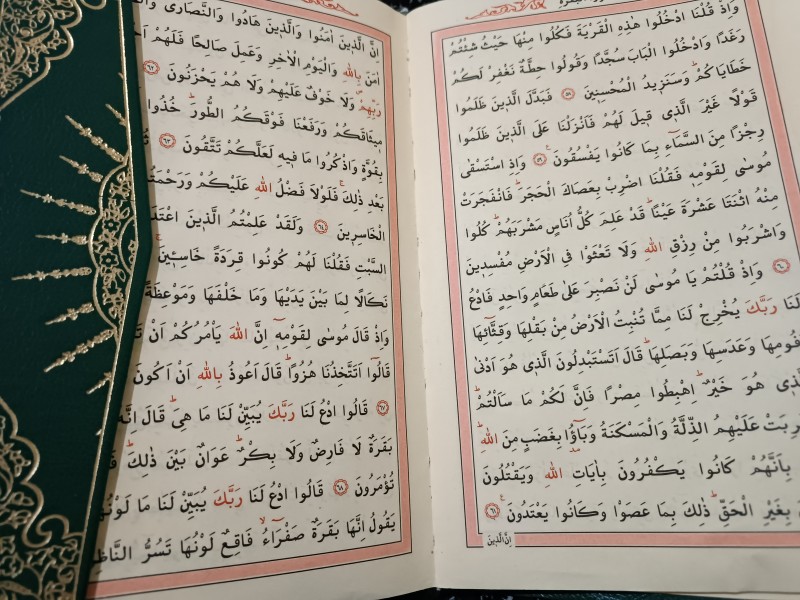 وَاِذْ قُلْنَا ادْخُلُوا هٰذِهِ الْقَرْيَةَ فَكُلُوا مِنْهَا حَيْثُ شِئْتُمْ
رَغَدًا وَادْخُلُوا الْبَابَ سُجَّدًا وَقُولُوا حِطَّةٌ نَغْفِرْ لَكُمْ
خَطَايَاكُمْ وَسَنَز۪يدُ الْمُحْسِن۪ينَ ﴿٥٨﴾ فَبَدَّلَ الَّذ۪ينَ ظَلَمُوا
قَوْلًا غَيْرَ الَّذ۪ي ق۪يلَ لَهُمْ فَاَنْزَلْنَا عَلَى الَّذ۪ينَ ظَلَمُوا
رِجْزًا مِنَ السَّمَٓاءِ بِمَا كَانُوا يَفْسُقُونَ ﴿٥٩﴾ وَاِذِ اسْتَسْقٰى
مُوسٰى لِقَوْمِه۪ فَقُلْنَا اضْرِبْ بِعَصَاكَ الْحَجَرَ فَانْفَجَرَتْ
مِنْهُ اثْنَتَا عَشْرَةَ عَيْنًا قَدْ عَلِمَ كُلُّ اُنَاسٍ مَشْرَبَهُمْ كُلُوا
وَاشْرَبُوا مِنْ رِزْقِ اللّٰهِ وَلَا تَعْثَوْا فِي الْاَرْضِ مُفْسِد۪ينَ
﴿٦٠﴾ وَاِذْ قُلْتُمْ يَا مُوسٰى لَنْ نَصْبِرَ عَلٰى طَعَامٍ وَاحِدٍ فَادْعُ
لَنَا رَبَّكَ يُخْرِجْ لَنَا مِمَّا تُنْبِتُ الْاَرْضُ مِنْ بَقْلِهَا وَقِثَّٓائِهَا
وَفُومِهَا وَعَدَسِهَا وَبَصَلِهَا قَالَ اَتَسْتَبْدِلُونَ الَّذ۪ي هُوَ اَدْنٰى
بِالَّذ۪ي هُوَ خَيْرٌ اِهْبِطُوا مِصْرًا فَاِنَّ لَكُمْ مَا سَاَلْتُمْ
وَضُرِبَتْ عَلَيْهِمُ الذِّلَّةُ وَالْمَسْكَنَةُ وَبَٓاؤُ۫ بِغَضَبٍ مِنَ اللّٰهِ
بِاَنَّهُمْ كَانُوا يَكْفُرُونَ بِاٰيَاتِ اللّٰهِ وَيَقْتُلُونَ
بِغَيْرِ الْحَقِّ ذٰلِكَ بِمَا عَصَوْا وَكَانُوا يَعْتَدُونَ ﴿٦١﴾
اِنَّ الَّذ۪ينَ
اِنَّ الَّذ۪ينَ اٰمَنُوا وَالَّذ۪ينَ هَادُوا وَالنَّصَارٰى
اٰمَنَ بِاللّٰهِ وَالْيَوْمِ الْاٰخِرِ وَعَمِلَ صَالِحًا فَلَهُمْ
رَبِّهِمْ وَلَا خَوْفٌ عَلَيْهِمْ وَلَا هُمْ يَحْزَنُونَ ﴿٦٢﴾
م۪يثَاقَكُمْ وَرَفَعْنَا فَوْقَكُمُ الطُّورَ خُذُوا
بِقُوَّةٍ وَاذْكُرُوا مَا ف۪يهِ لَعَلَّكُمْ تَتَّقُونَ ﴿٦٣﴾
بَعْدِ ذٰلِكَ فَلَوْلَا فَضْلُ اللّٰهِ عَلَيْكُمْ وَرَحْمَتُهُ
الْخَاسِر۪ينَ ﴿٦٤﴾ وَلَقَدْ عَلِمْتُمُ الَّذ۪ينَ
السَّبْتِ فَقُلْنَا لَهُمْ كُونُوا قِرَدَةً خَاسِـ۪ٔينَ
نَكَالًا لِمَا بَيْنَ يَدَيْهَا وَمَا خَلْفَهَا وَمَوْعِظَةً
وَاِذْ قَالَ مُوسٰى لِقَوْمِه۪ٓ اِنَّ اللّٰهَ يَأْمُرُكُمْ اَنْ
قَالُٓوا اَتَتَّخِذُنَا هُزُوًا قَالَ اَعُوذُ بِاللّٰهِ اَنْ اَكُونَ
﴿٦٧﴾ قَالُوا ادْعُ لَنَا رَبَّكَ يُبَيِّنْ لَنَا مَا هِيَ قَالَ اِنَّهُ
بَقَرَةٌ لَا فَارِضٌ وَلَا بِكْرٌ عَوَانٌ بَيْنَ ذٰلِكَ
تُؤْمَرُونَ ﴿٦٨﴾ قَالُوا ادْعُ لَنَا رَبَّكَ يُبَيِّنْ لَنَا مَا لَوْنُهَا
يَقُولُ اِنَّهَا بَقَرَةٌ صَفْرَٓاءُ فَاقِعٌ لَوْنُهَا تَسُرُّ